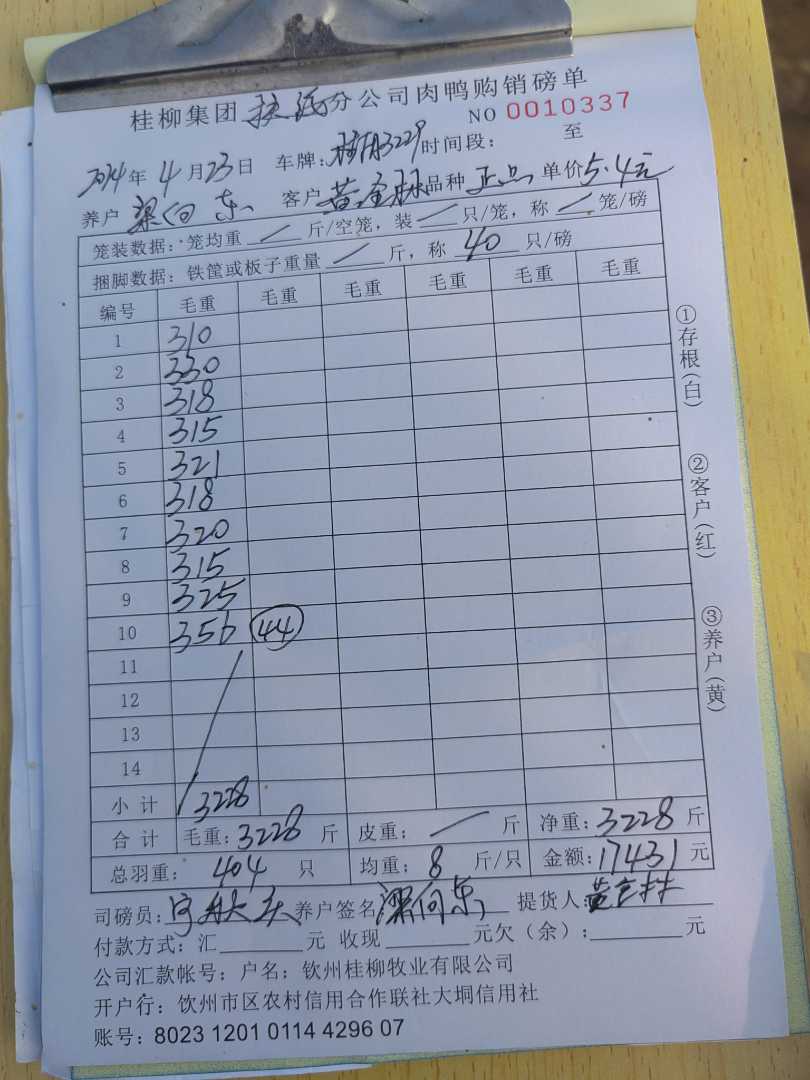 桂柳集团 分公司肉鸭购销磅单
NO 0010337
2024年4月23日 车牌:桂A3229 时间段: 至
养户 梁向东 客户 黄金林 品种 正品 单价5.4元
笼装数据:笼均重 / 斤/空笼,装 / 只/笼,称 / 笼/磅
捆脚数据:铁筐或板子重量 / 斤,称 40 只/磅
编号 毛重 毛重 毛重 毛重 毛重 毛重
1 310
2 330
3 318
4 315
5 321
6 318
7 320
8 315
9 325
10 356 44
11
12
13
14
小计 3228
合计 毛重:3228斤 皮重: / 斤 净重:3228斤
总羽重: 404 只 均重: 8 斤/只 金额:17431元
司磅员: 养户签名 梁向东 提货人:黄金林
付款方式:汇 元 收现 元欠(余): 元
公司汇款帐号:户名:钦州桂柳牧业有限公司
开户行:钦州市区农村信用合作联社大垌信用社
账号:8023 1201 0114 4296 07
①存根(白)
②客户(红)
③养户(黄)